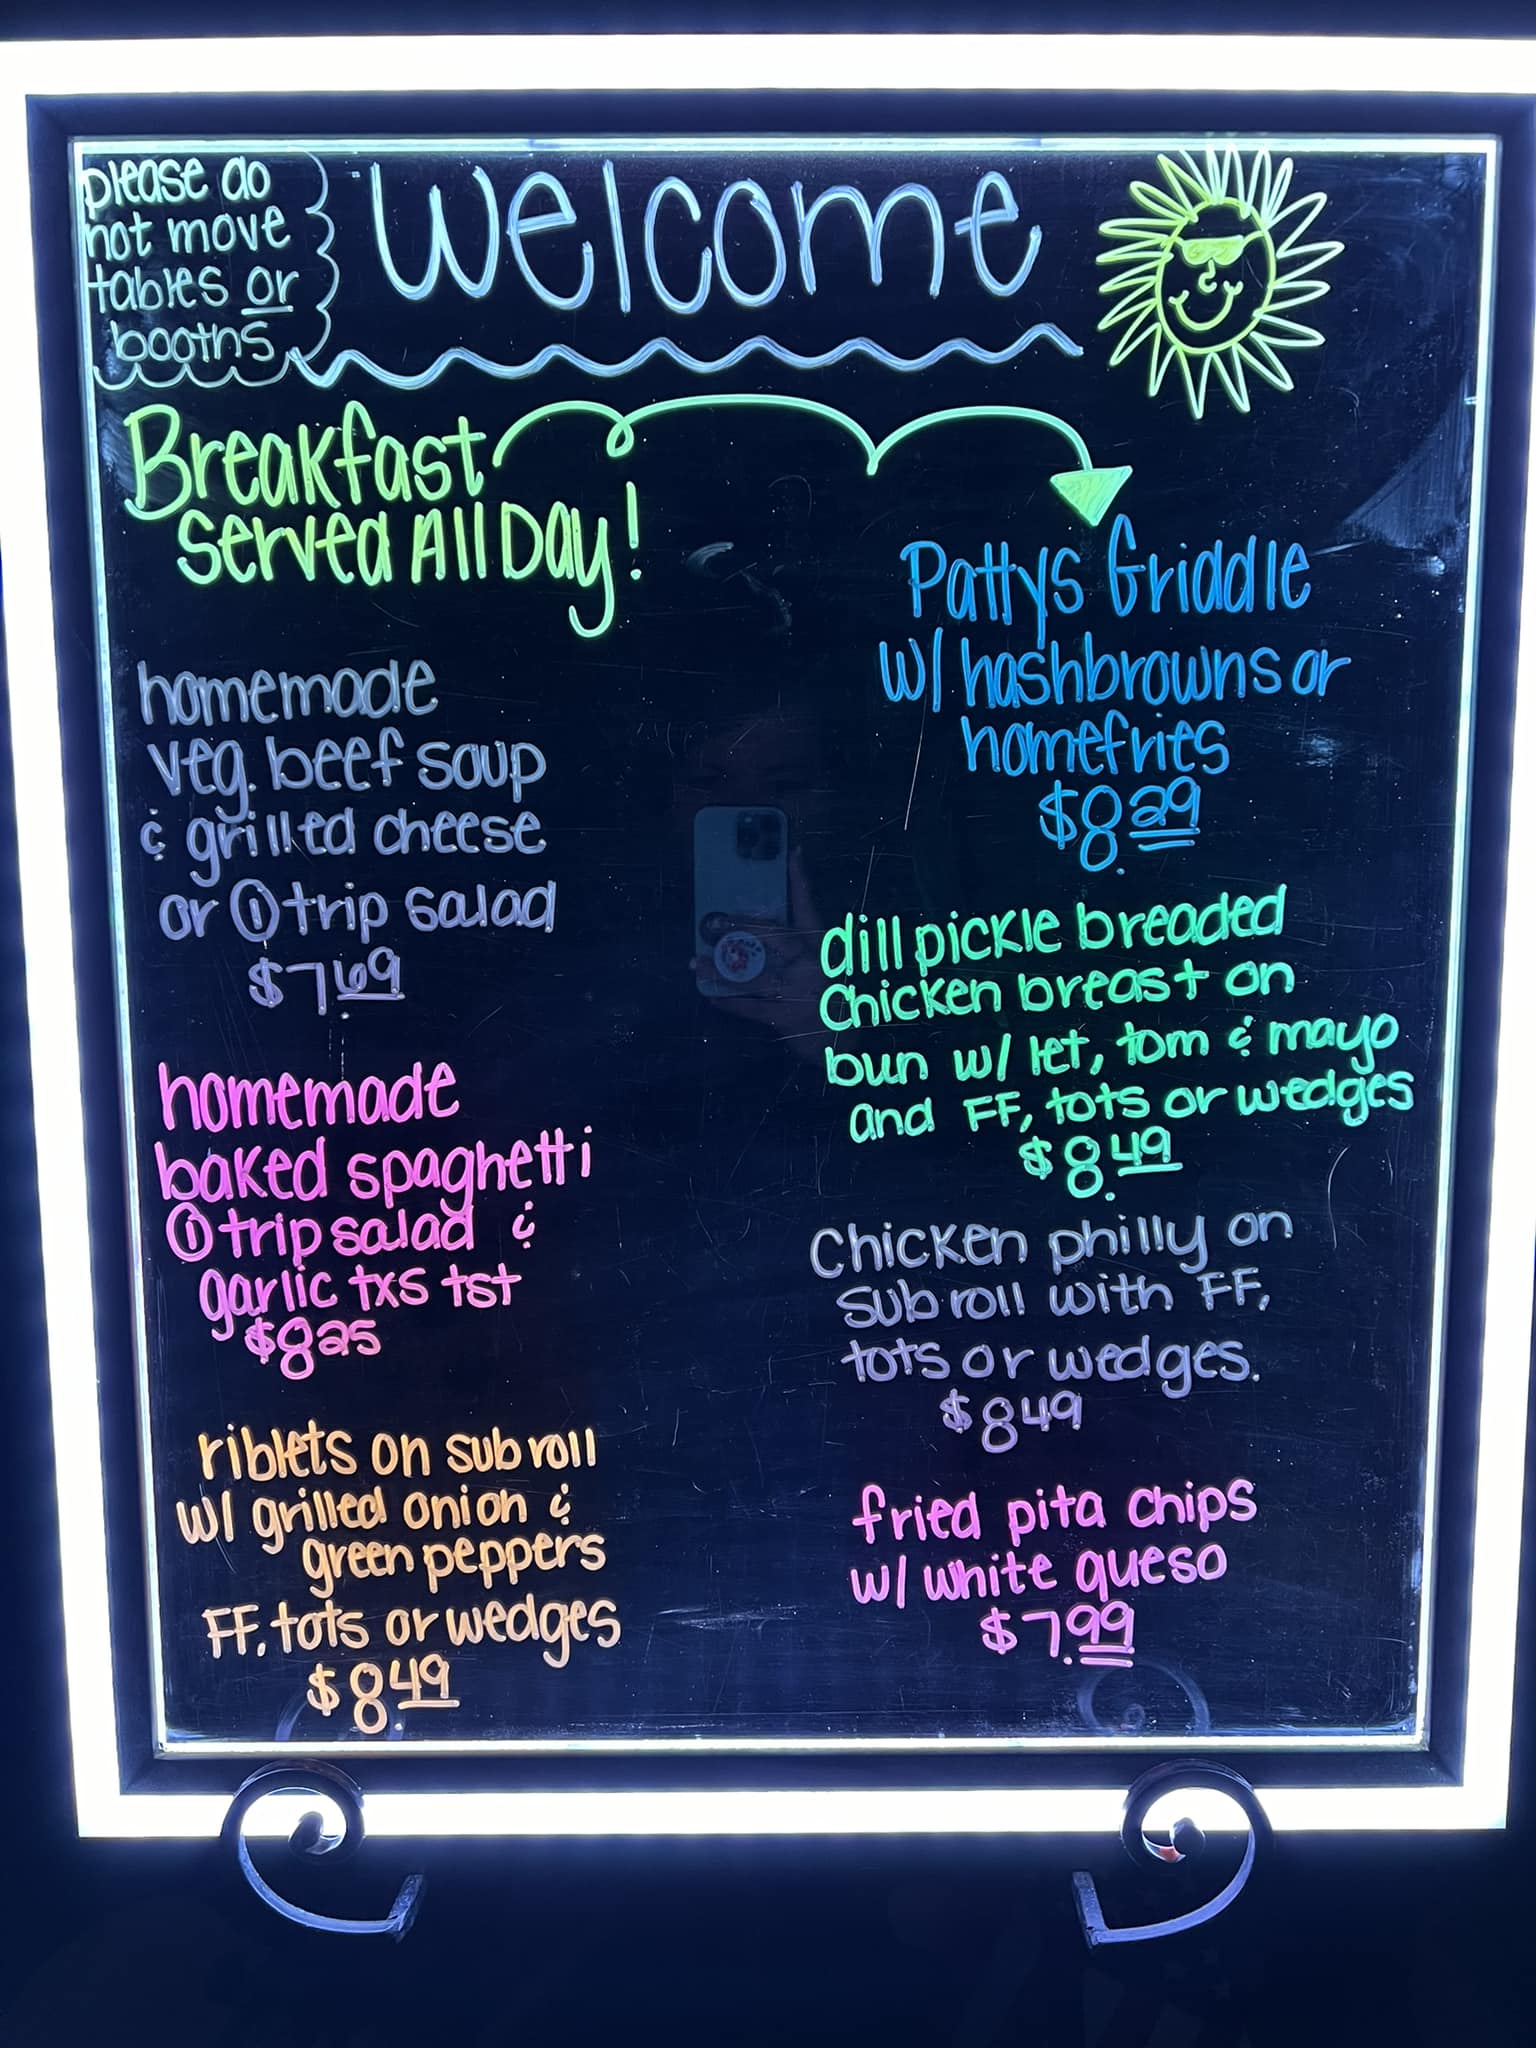 please do
not move
tables or
booths
Welcome
Breakfast
served All Day!
homemade
veg. beef soup
& grilled cheese
or ① trip salad
$7.69
homemade
baked spaghetti
① trip salad &
garlic txs tst
$825
riblets on sub roll
w/ grilled onion &
green peppers
FF, tots or wedges
$8.49
Pattys Griddle
w/ hashbrowns or
homefries
$8.29
dill pickle breaded
Chicken breast on
bun w/ let, tom & mayo
and FF, tots or wedges
$8.49
Chicken philly on
sub roll with FF,
tots or wedges.
$849
fried pita chips
w/ white queso
$7.99